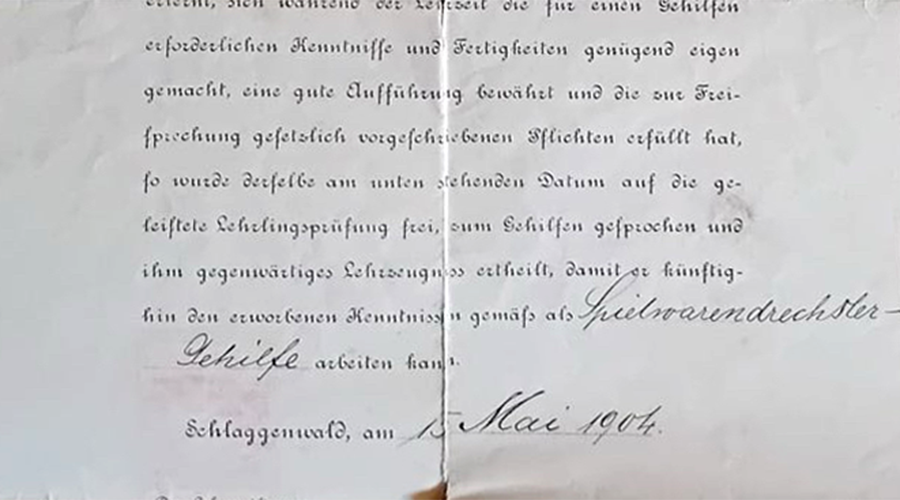 erlernt, sich während der Lehrzeit die für einen Gehilfen
erforderlichen Kenntnisse und Fertigkeiten genügend eigen
gemacht, eine gute Aufführung bewährt und die zur Frei-
sprechung gesetzlich vorgeschriebenen Pflichten erfüllt hat,
so wurde derselbe am unten stehenden Datum auf die ge-
leistete Lehrlingsprüfung frei, zum Gehilfen gesprochen und
ihm gegenwärtiges Lehrzeugniss ertheilt, damit er künftig-
hin den erworbenen Kenntnissen gemäss als Spielwarendrechsler-
Gehilfe arbeiten kann.
Schlaggenwald, am 15 Mai 1904.